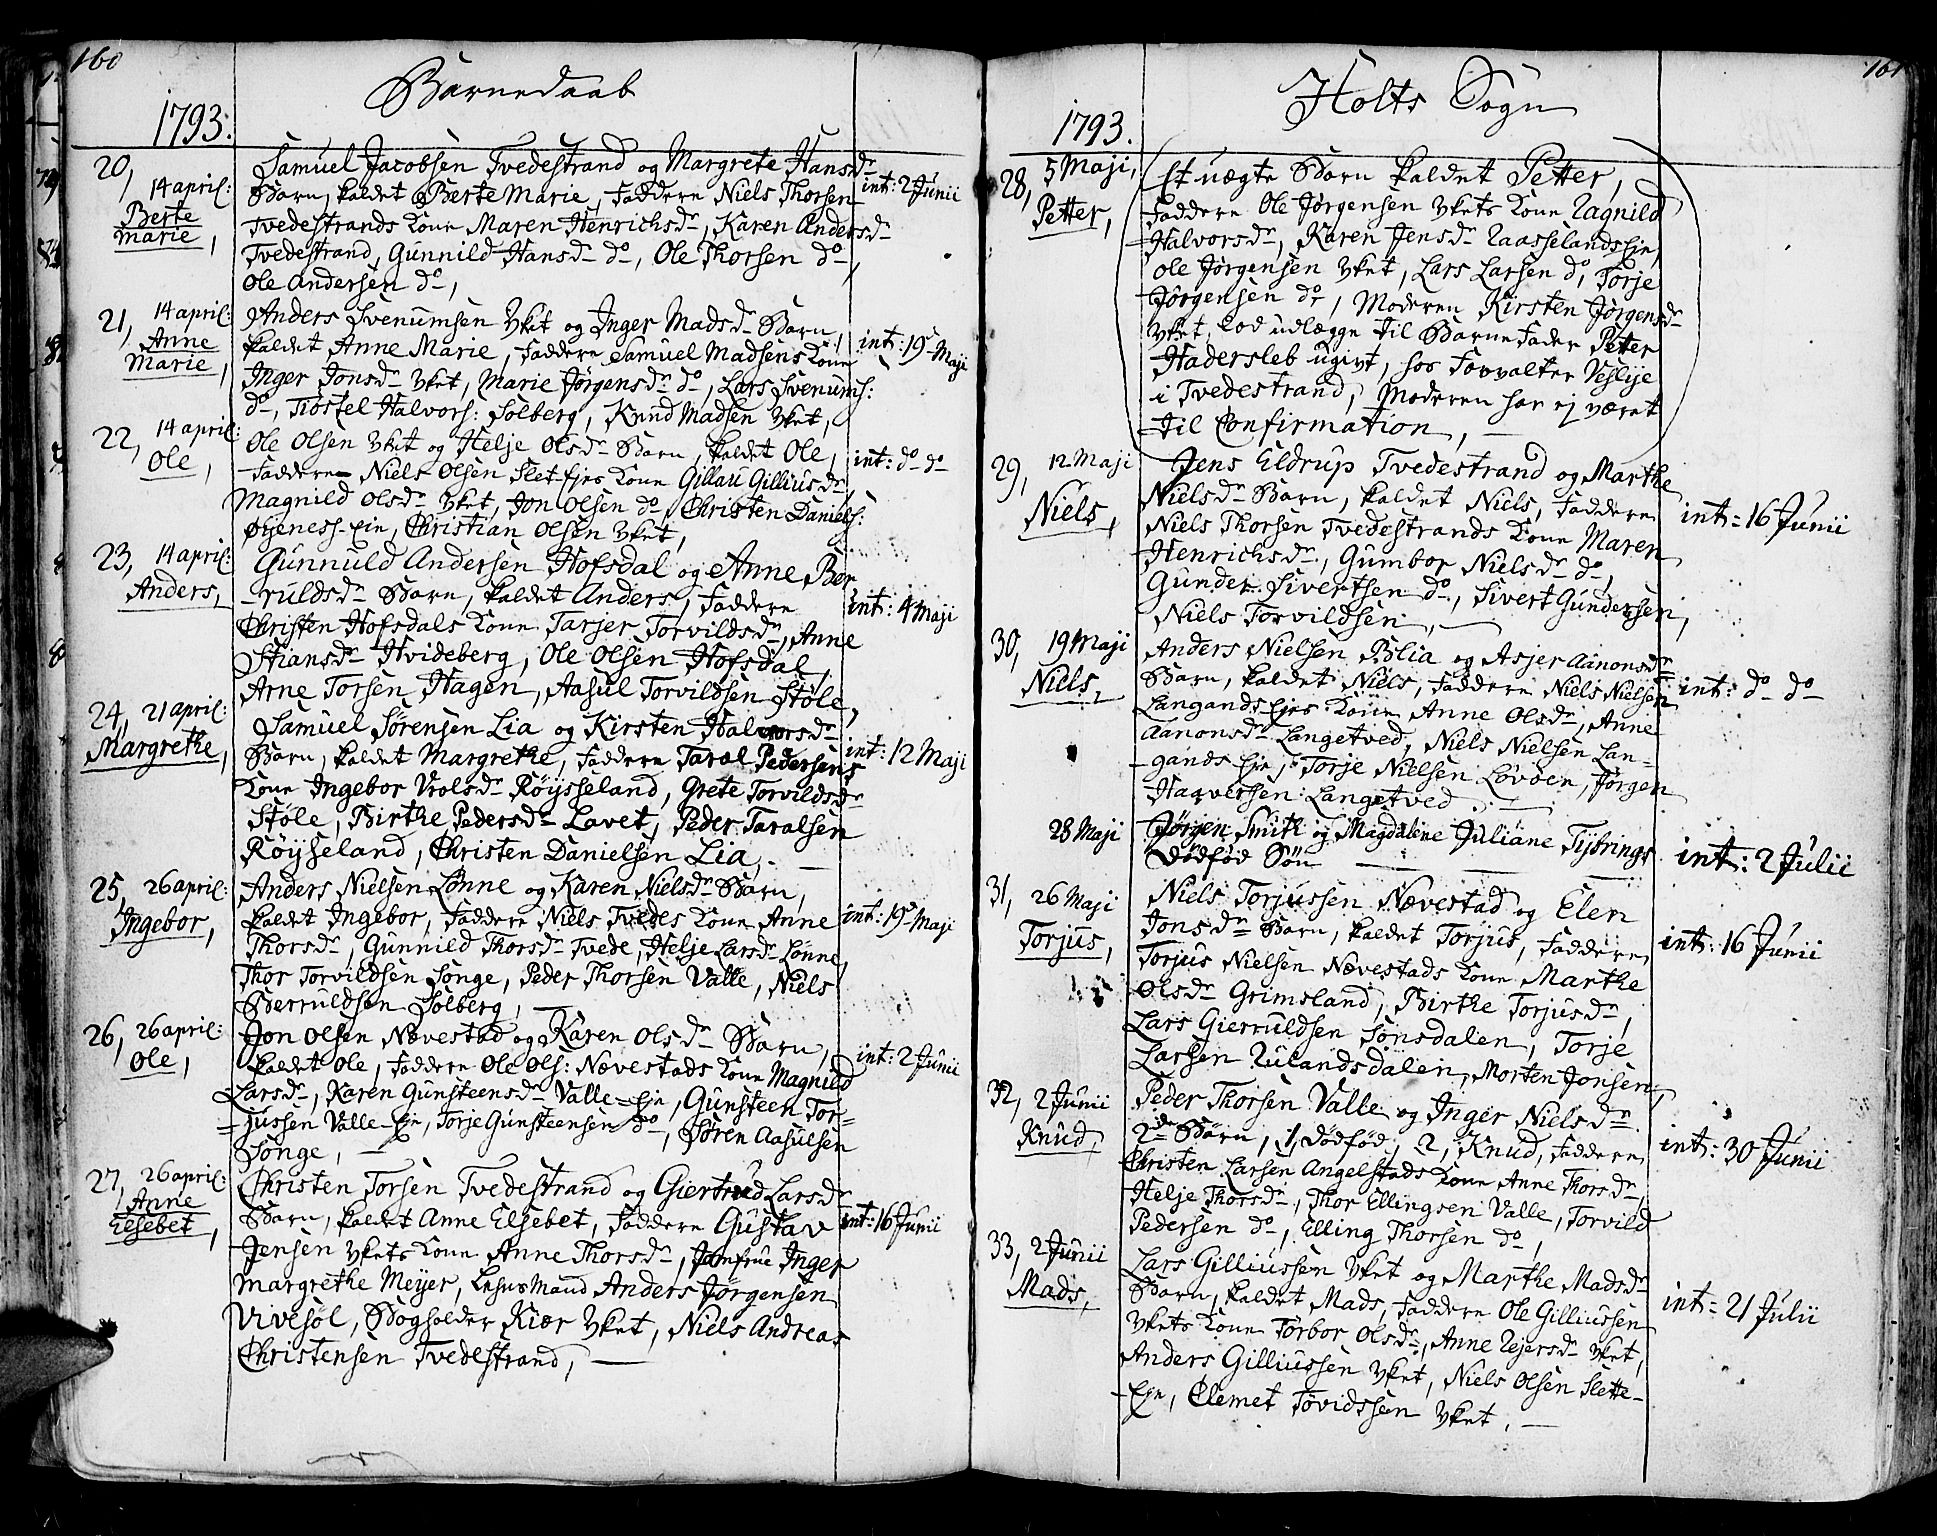 160
Barnedaab
1793.
20, 14 april:
Berte
Marie,
Samuel Jacobsen Tvedestrand og Margrete Hansdr
Barn, kaldet Berte Marie, Faddere Niels Thorsen
Tvedestrands Kone Maren Henrichsdr, Karen Andersdr
Tvedestrand, Gunnild Hansdr do, Ole Thorsen do,
Ole Andersen do,
int: 2 Junii
21, 14 april:
Anne
Marie,
Anders Svenumsen Yket og Inger Madsdr Barn,
kaldet Anne Marie, Faddere Samuel Madsens Kone
Inger Jonsdr Yket, Marie Jørgensdr do, Lars Svenums:
do, Tiostel Halvors: Solberg, Knud Madsen Yket,
int: 19 Maji
22, 14 april:
Ole,
Ole Olsen Yket og Helje Olsdr Barn, kaldet Ole,
Faddere Niels Olsen Slet-Ejes Kone Gillau Gilliusdr
Magnild Olsdr Yket, Jon Olsen do, Christen Daniels:
Øyeness-Eie, Christian Olsen Yket,
int: do do
23, 14 april:
Anders,
Gunnuld Andersen Hofsdal og Anne Ber
-ruldsdr Barn, kaldet Anders, Faddere
Christen Hofsdals Kone Tarjer Torvildsdr, Anne
Stiansdr Hvideberg, Ole Olsen Hofsdal,
Arne Torsen Hagen, Aasul Torvildsen Støle,
int: 4 Maji
24, 21 april:
Margrethe,
Samuel Sørensen Lia og Kirsten Halvorsdr
Barn, kaldet Margrethe, Faddere Taral Pedersens
Kone Ingebor Vrolsdr Röijsseland, Grete Torvildsdr
Støle, Birthe Pedersdr Lavet, Peder Taralsen
Röijseland, Christen Danielsen Lia,
int: 12 Maji
25, 26 april:
Ingebor,
Anders Nielsen Lønne og Karen Nielsdr Barn,
kaldet Ingebor, Faddere Niels Tvedes Kone Anne
Thorsdr, Gunnild Thorsdr Tvede, Helje Larsdr Lønne,
Thor Torvildsen Songe, Peder Thorsen Valle, Niels
Berruldsen Solberg,
int: 19 Maji
26, 26 april:
Ole,
Jon Olsen Nævestad og Karen Olsdr Barn,
kaldet Ole, Faddere Ole Ols: Nævestads Kone Magnild
Larsdr, Karen Gunsteensdr Valle-Eje, Gunsteen Tor=
=jussen Valle-Eje, Torje Gunsteensen do, Søren Aasulsen
Songe,
int: 2 Junii
27, 26 april:
Anne
Elsebet,
Christen Torsen Tvedestrand og Giertrud Larsdr
Barn, kaldet Anne Elsebet, Faddere Gustav
Jensen Ykets Kone Anne Thorsdr, Jomfrue Inger
Margrethe Meyer, Lensmand Anders Jørgensen
Vivesøl, Bogholder Kiær Yket, Niels Andreas
Christensen Tvedestrand,
int: 16 Junii
161
Holts Sogn
1793.
28, 5 Maji,
Petter,
Et uægte Barn kaldet Petter,
Faddere Ole Jørgensen Ykets Kone Ragnild
Halvorsdr, Karen Jensdr Raasselands Eje,
Ole Jørgensen Yket, Lars Larsen do, Torje
Jørgensen do, Moderen Kirsten Jørgensdr
Yket, lod udlægge til Barnefader Peter
Hadersleb ugivt, hos Forvalter Veslije
i Tvedestrand, Moderen har ej været
til Confirmation,
29, 12 Maji
Niels,
Jens Eldrup Tvedestrand og Marthe
Nielsdr Barn, kaldet Niels, Faddere
Niels Thorsen Tvedestrands Kone Maren
Henrichsdr, Gumbor Nielsdr do,
Gunder Sivertsen do, Sivert Gundersen,
Niels Torvildsen,
int: 16 Junii
30, 19 Maji
Niels,
Anders Nielsen Blia og Asjer Aanonsdr
Barn, kaldet Niels, Faddere Niels Nielsen
Langands Ejes Kone Anne Olsdr, Anne
Aanonsdr Langetved, Niels Nielsen Lan-
gands Eje, Torje Nielsen Løvden, Jørgen
Haqverssen Langetved
int: do do
28 Maji
Jørgen Smith og Magdalene Juliane Tybrings
Dødfød Søn
int: 2 Julii
31, 26 Maji
Torjus,
Niels Torjussen Nævestad og Elen
Jonsdr Barn, kaldet Torjus, Faddere
Torjus Nielsen Nævestads Kone Marthe
Olsdr Grimsland, Birthe Torjusdr,
Lars Gierruldsen Sønsdalen, Torje
Larsen Rulandsdalen, Morten Jonsen,
int: 16 Junii
32, 2 Junii
Knud,
Peder Thorsen Valle og Inger Nielsdr
2de Børn, 1, dødfød, 2, Knud, Faddere
Christen Larsen Angelstads Kone Anne Thorsdr,
Helje Thorsdr, Thor Ellingsen Valle, Torvild
Pedersen do, Elling Thorsen do,
int: 30 Junii
33, 2 Junii
Mads,
Lars Gilliussen Yket og Marthe Madsdr
Barn, kaldet Mads, Faddere Ole Gilliussen
Ykets Kone Torbor Olsdr, Anne Rejersdr Yket,
Anders Gilliussen Yket, Niels Olsen Slette-
-Eje, Clemet Tovidssen Yket,
int: 21 Julii